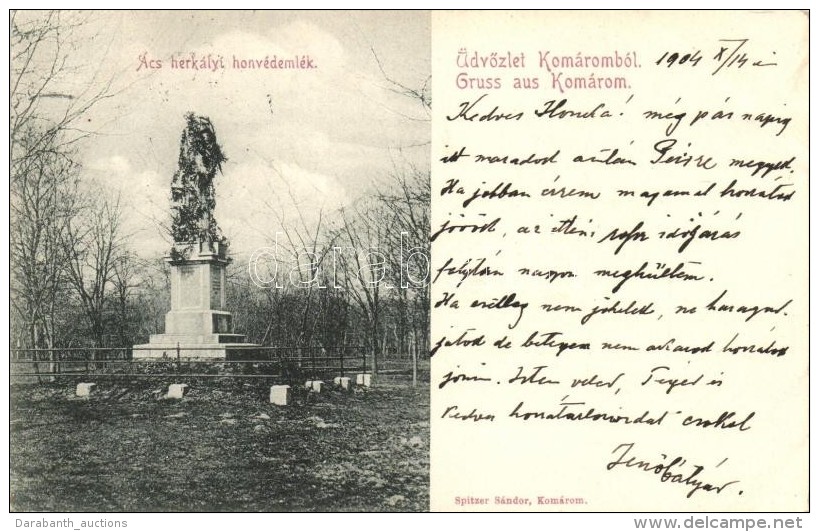 Ács herkályi honvédemlék.
Üdvözlet Komáromból.
Gruss aus Komárom.
1904 X/14 én
Kedves Honka! még pár napig
itt maradok azután Persze megyek.
Ha jobban érzem magamat hozzátok
jövök, az itteni időjárás
folytán nagyon meghűltem.
Ha esetleg nem jöhetek, ne haragud-
jatok de betegen nem akarok hozzátok
jönni. Isten veled, Téged is
Kedves hozzátartozóidat csókol
Jenő bátyád.
Spitzer Sándor, Komárom.
darab
Darabanth_auctions
delcampe.net